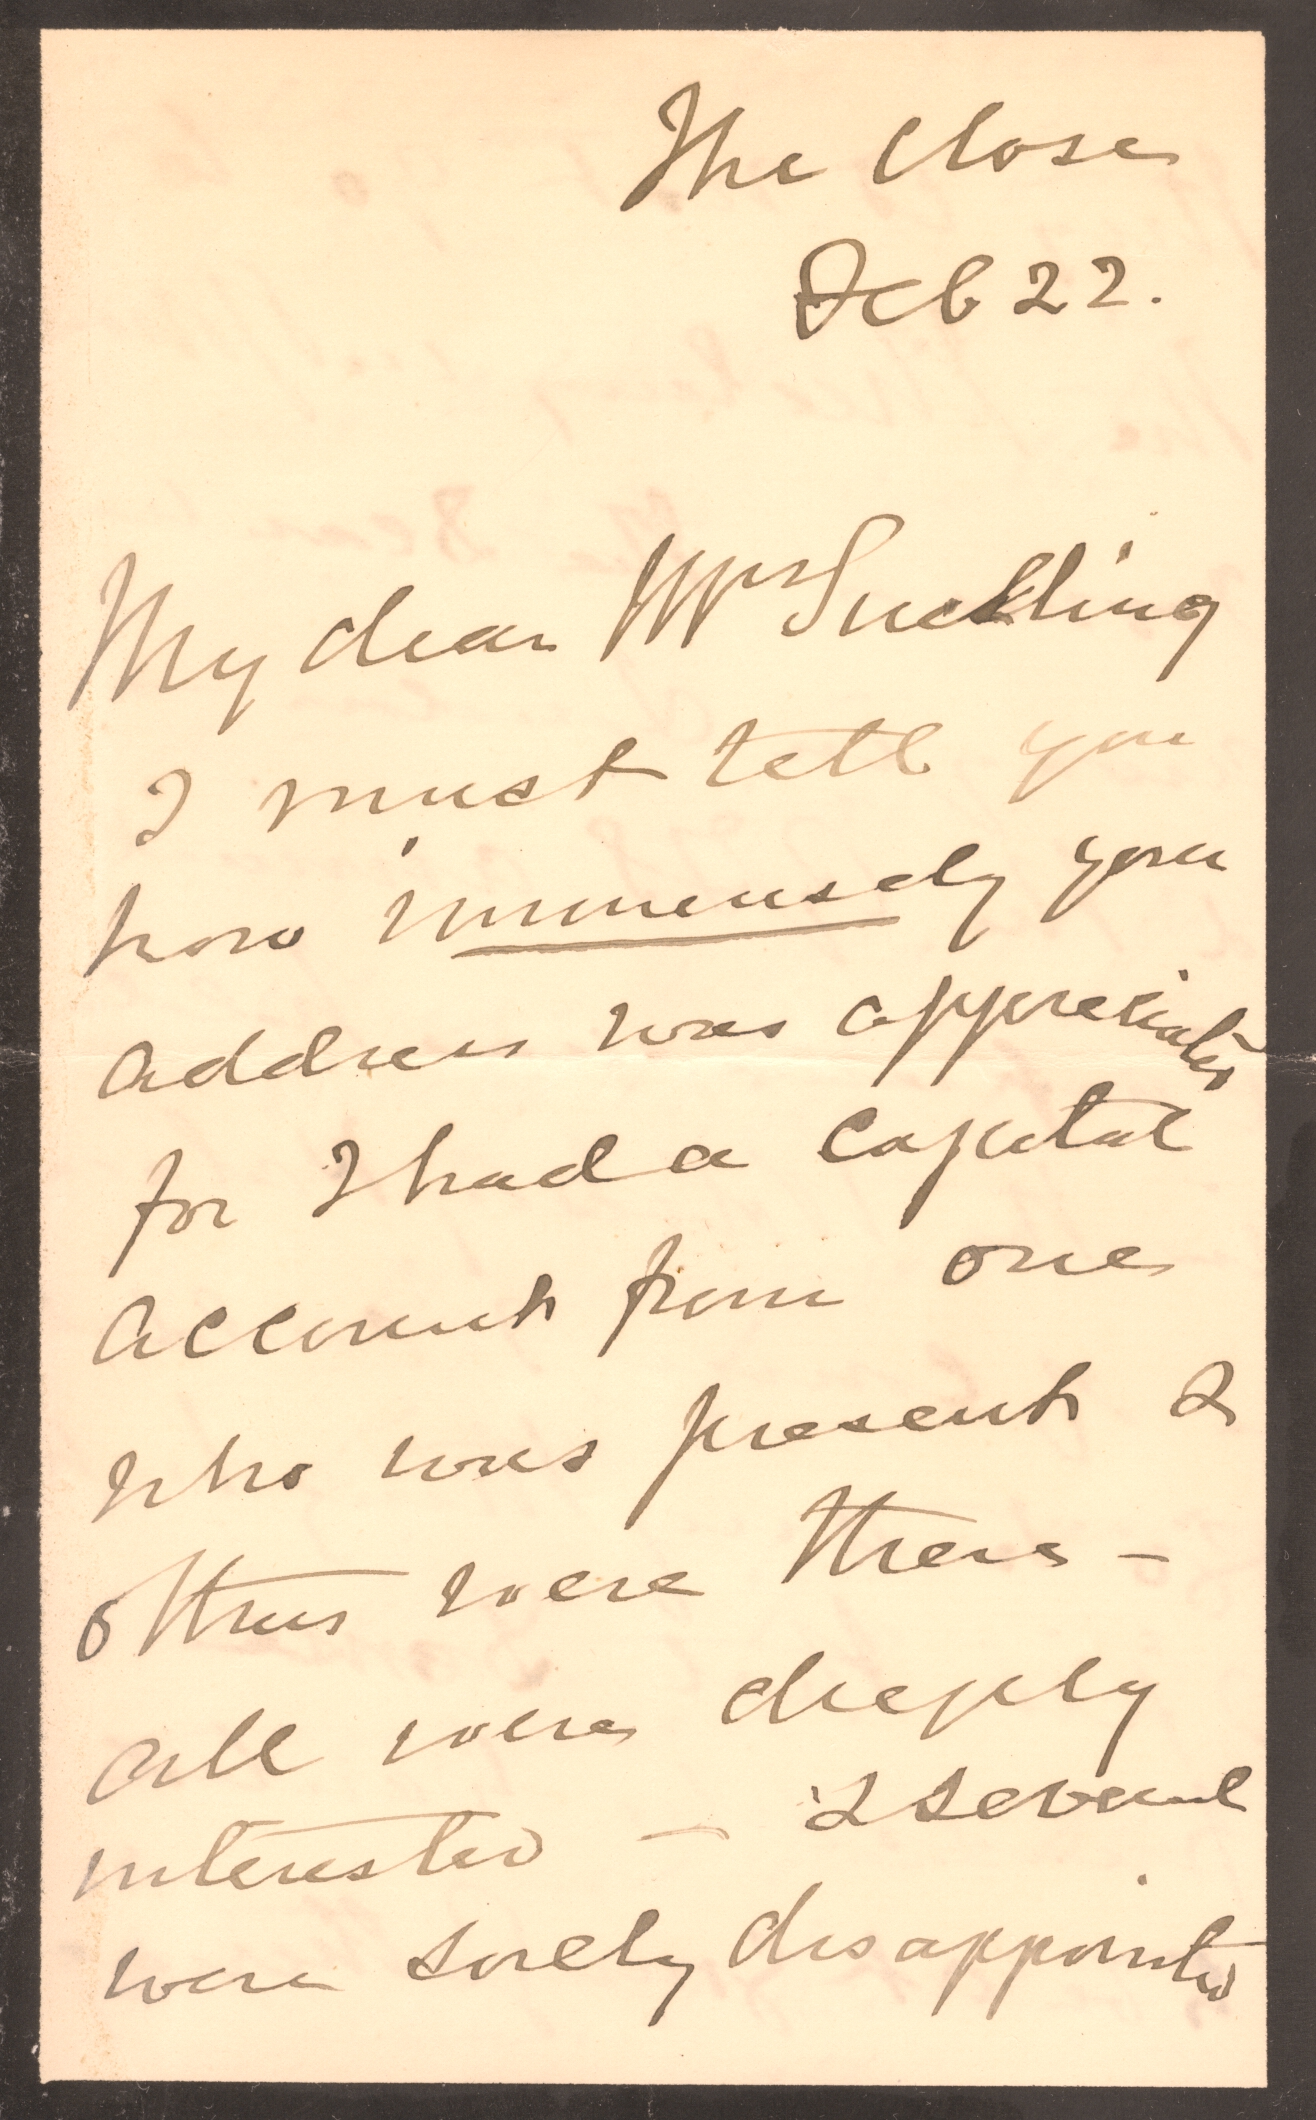 The Close
Feb 22.
My dear Mrs Suckling
I must tell you
how immensely your
address was appreciated
for I had a capital
account from one
who was present &
others were there -
all were deeply
interested - & several
were sorely disappointed